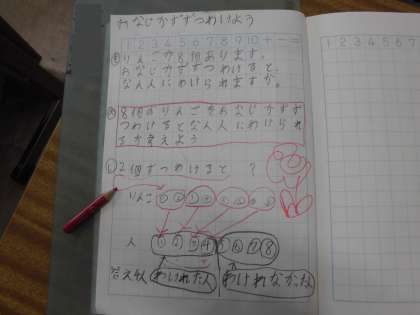 おなじかずずつわけよう
1 2 3 4 5 6 7 8 9 10 + ー =
りんごが8個あります。
おなじかずずつわけると、
なん人にわけられますか。
8個のりんごをおなじかずず
つわけるとなん人にわけられ
るか考えよう
① 2個ずつわけると ?
りんご
人 ① ② ③ ④ ⑤ ⑥ 7 8
答え4人 わけれた人 わけれなかった
1 2 3 4 5 6 7